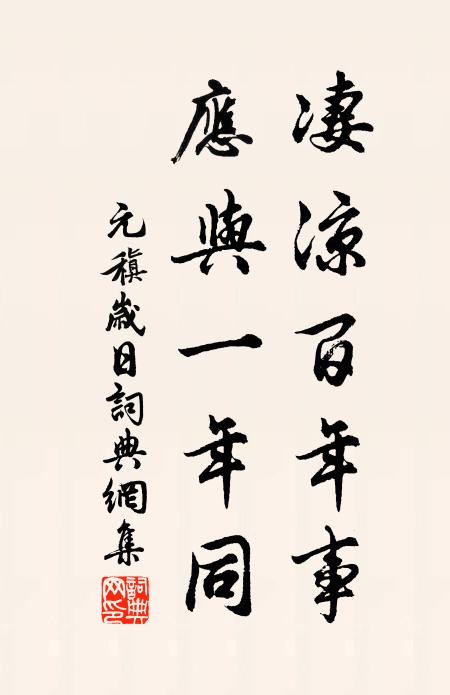 凄涼百年事
應與一年同
元稹歲日詞典網集
詞典网印